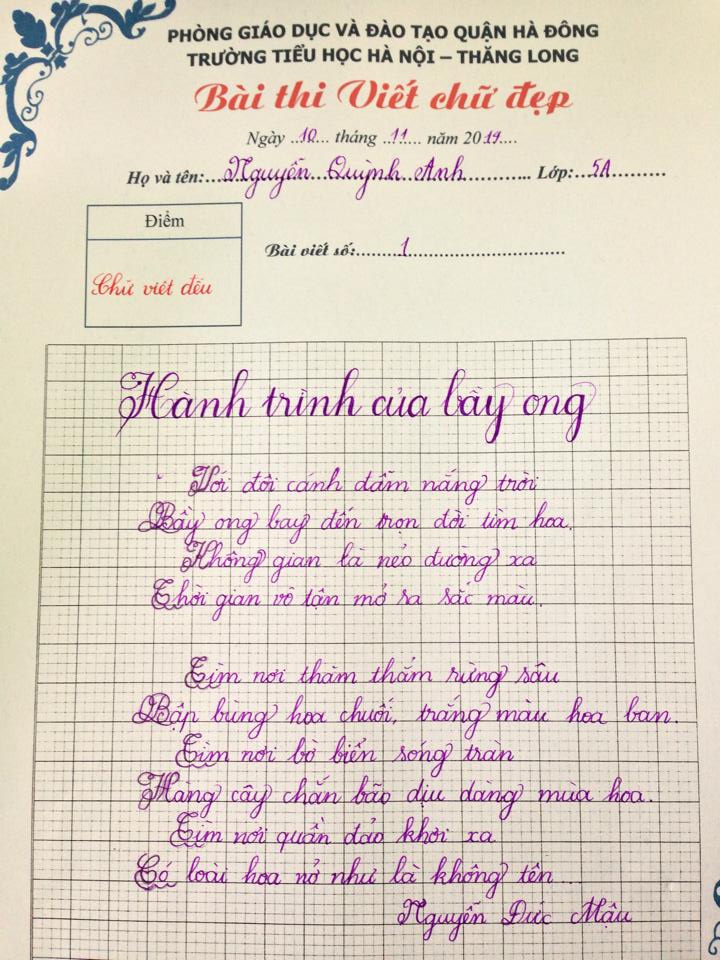 PHÒNG GIÁO DỤC VÀ ĐÀO TẠO QUẬN HÀ ĐÔNG
TRƯỜNG TIỂU HỌC HÀ NỘI – THĂNG LONG
Bài thi Viết chữ đẹp
Ngày ..10... tháng ..11... năm 2019....
Họ và tên:....Nguyễn Quỳnh Anh.... Lớp:...5A..........
Điểm
Chữ viết đều
Bài viết số:........1..............................
Hành trình của bầy ong
Với đôi cánh đẫm nắng trời
Bầy ong bay đến trọn đời tìm hoa.
Không gian là nẻo đường xa
Thời gian vô tận mở sa sắc màu.
Tìm nơi thăm thẳm rừng sâu
Bập bùng hoa chuối, trắng màu hoa ban.
Tìm nơi bờ biển sóng tràn
Hàng cây chắn bão dịu dàng mùa hoa.
Tìm nơi quần đảo khơi xa
Có loài hoa nở như là không tên...
Nguyễn Đức Mậu